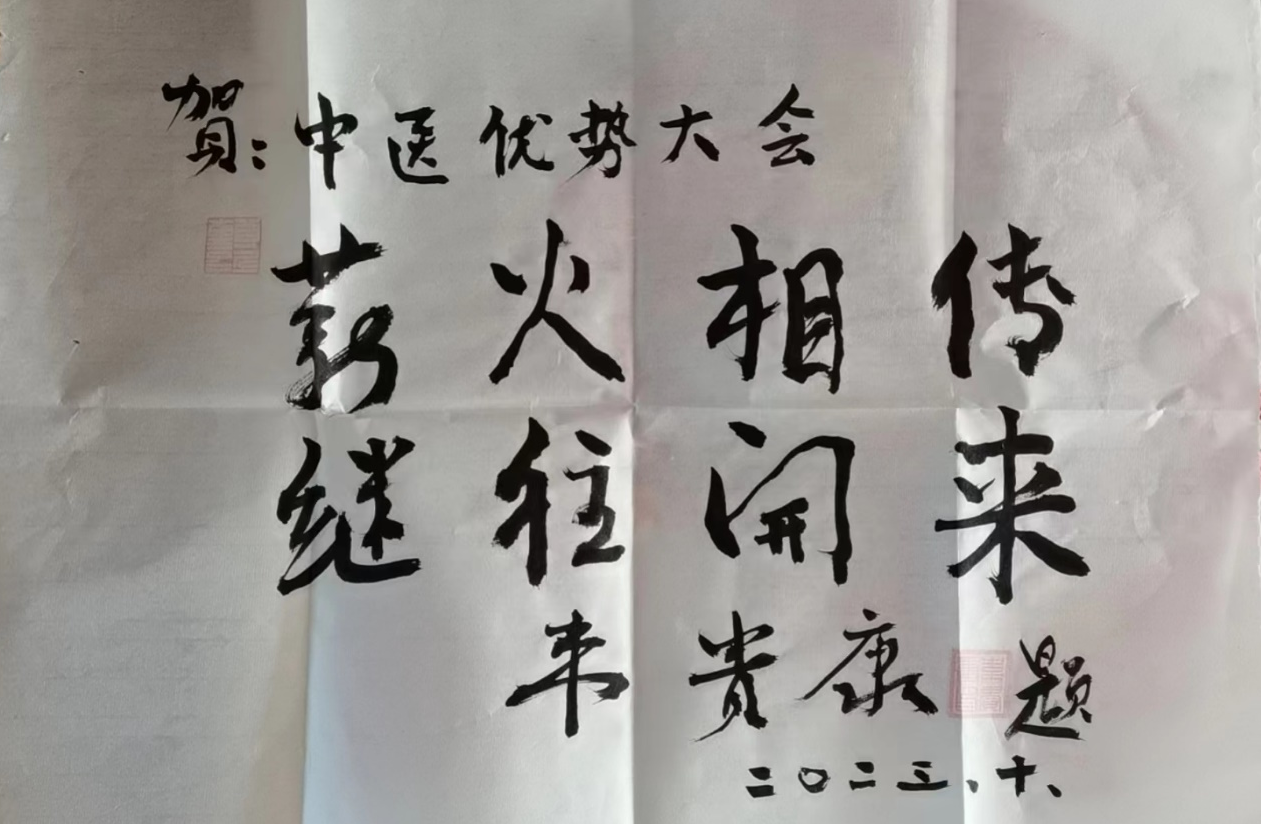 贺:中医优势大会
薪火相传
继往开来
朱贵康题
二〇二三、十、